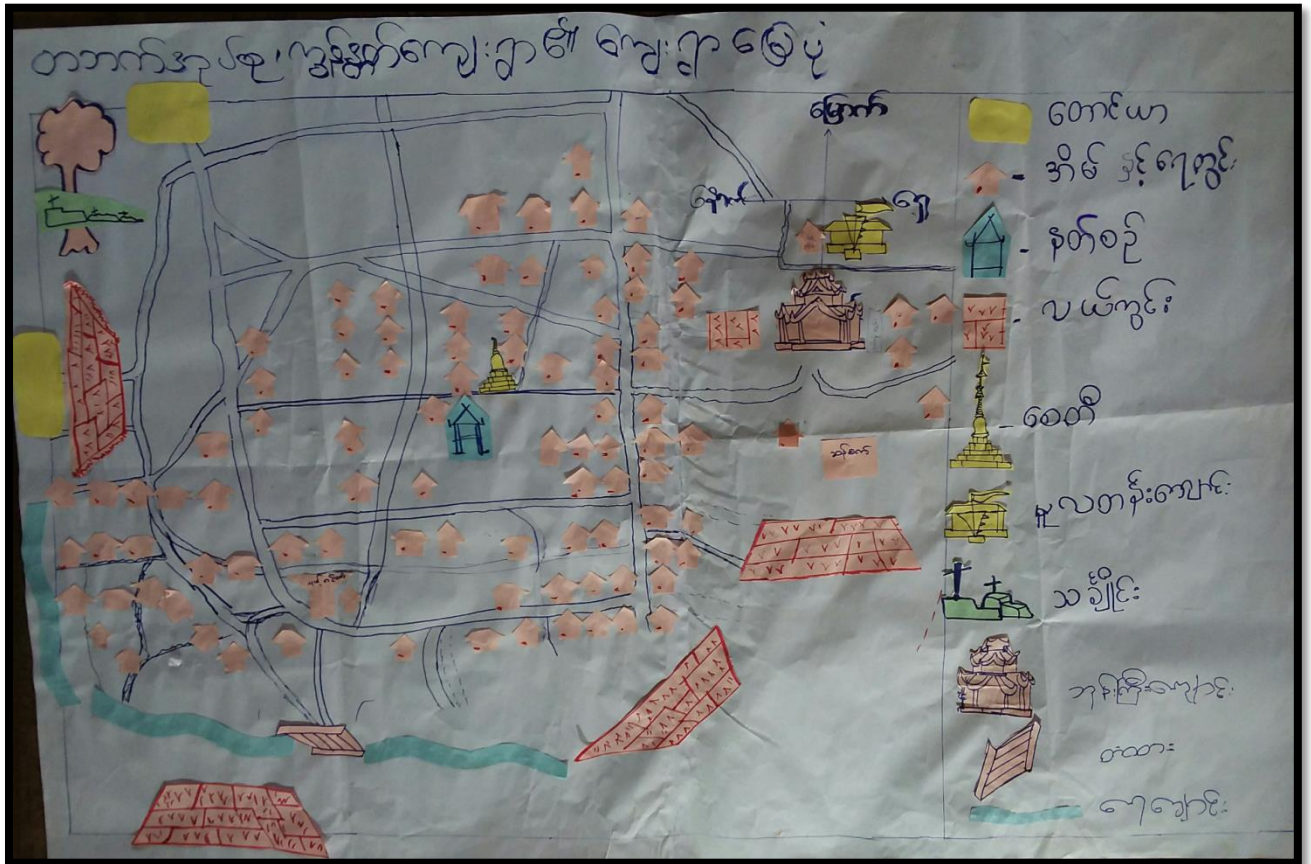 တဘက်အုပ်စု၊ ကျွန်းညွတ်ကျေးရွာ၏ ကျေးရွာ မြေပုံ
မြောက်
နောက်
ရှေ့
တောင်ယာ
အိမ် နှင့် ရေတွင်း
နတ်စဉ်
လယ်ကွင်း
စေတီ
မူလတန်းကျောင်း
သင်္ချိုင်း
ဘုန်းကြီးကျောင်း
တံထား
ရေချောင်း
ဆန်စက်